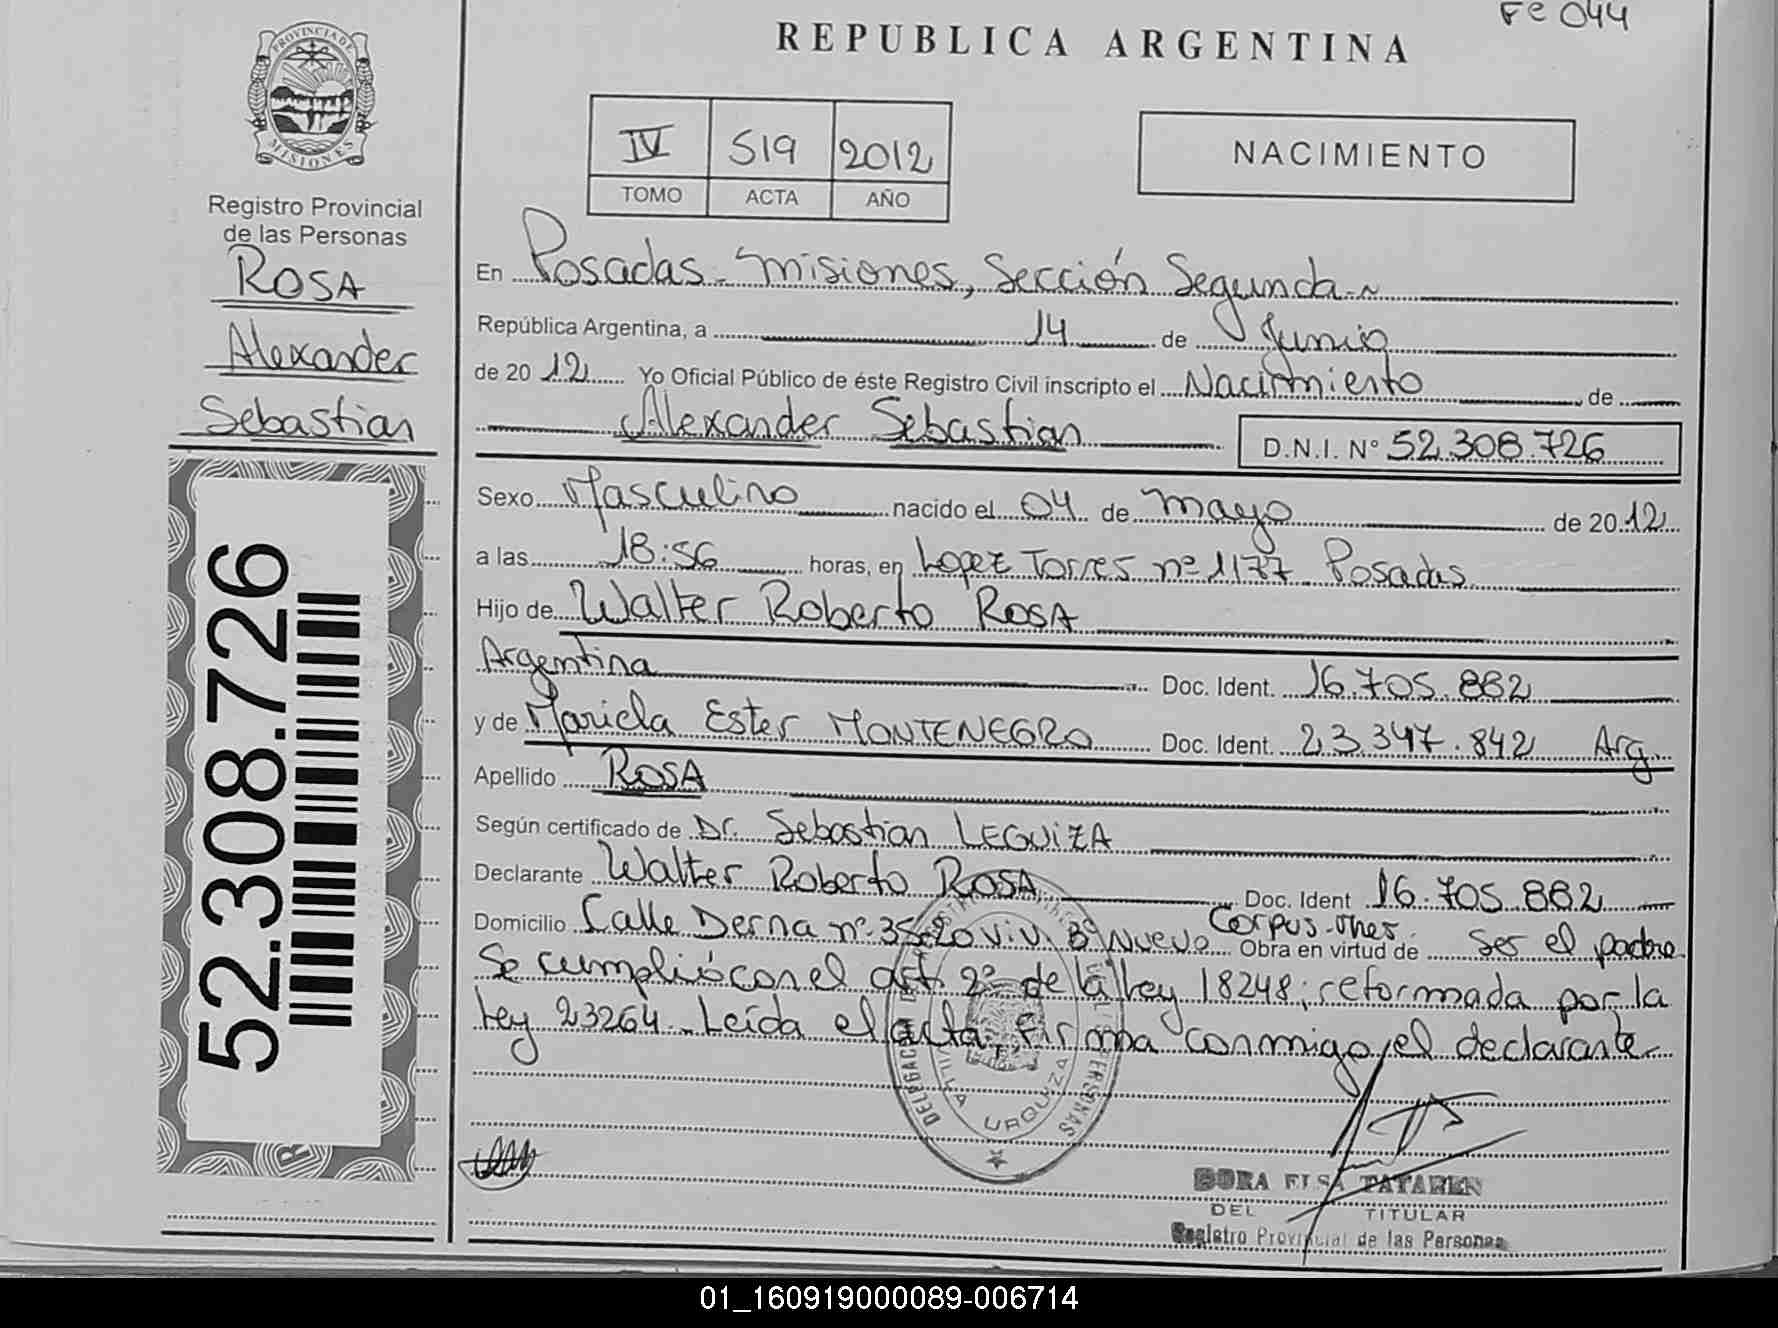 Fe 044
REPUBLICA ARGENTINA
PROVINCIA DE
MISIONES
IV 519 2012
TOMO ACTA AÑO
NACIMIENTO
Registro Provincial
de las Personas
ROSA
Alexander
Sebastian
52.308.726
En Posadas - Misiones, Sección Segunda.~
República Argentina, a 14 de Junio
de 2012 Yo Oficial Público de éste Registro Civil inscripto el Nacimiento de
Alexander Sebastian D.N.I. Nº 52.308.726
Sexo Masculino nacido el 04 de Mayo de 2012
a las 18:56 horas, en Lopez Torres nº 1177 Posadas
Hijo de Walter Roberto ROSA
Argentina Doc. Ident. 16.705.882
y de Mariela Ester MONTENEGRO Doc. Ident. 23.347.842 Arg.
Apellido ROSA
Según certificado de Dr. Sebastian LEGUIZA
Declarante Walter Roberto ROSA Doc. Ident 16.705.882
Domicilio Calle Derna nº 35-20 Viv. Bº Nuevo Corpus Obra en virtud de ser el padre
Se cumplió con el art. 2º de la Ley 18248, reformada por la
Ley 23264. Leída el acta, Firma conmigo, el declarante
DELEGAC PERSONAS
VILLA URQUIZA
DORA ELSA TATAREN
DEL TITULAR
Registro Provincial de las Personas
01_160919000089-006714